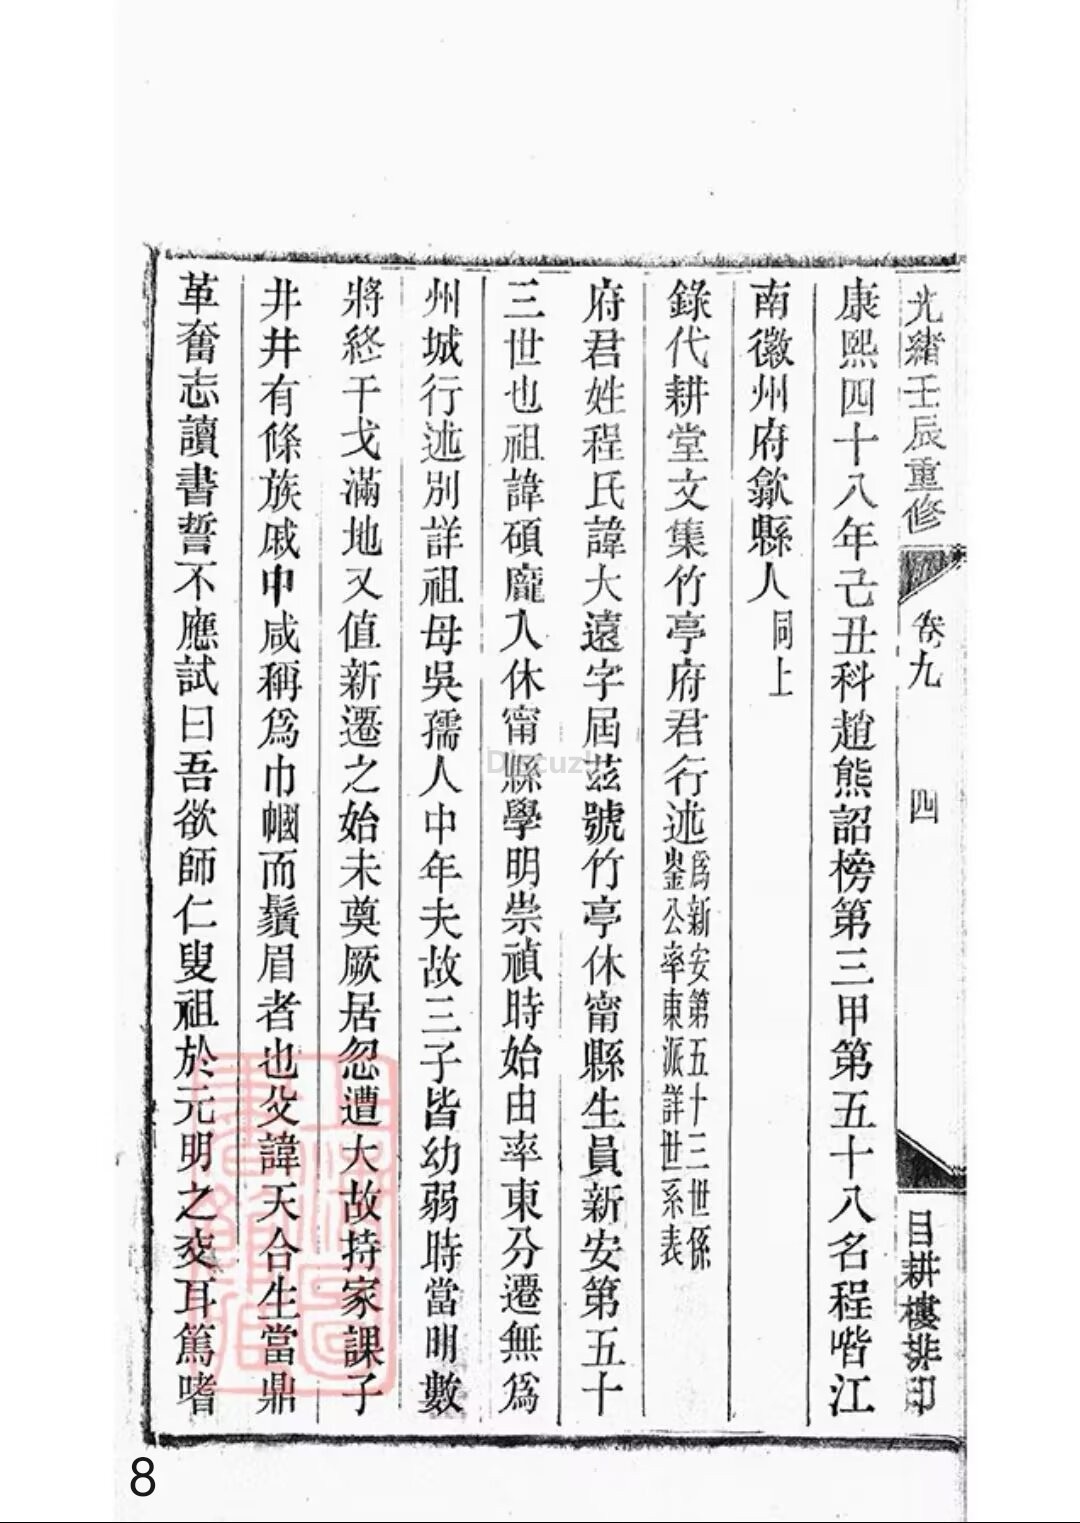 光緒壬辰重修
卷九
四
目耕樓排印
康熙四十八年己丑科趙熊詔榜第三甲第五十八名程喈江
南徽州府歙縣人同上
錄代耕堂文集竹亭府君行述爲新安第五十三世係
鋆公率東派詳世系表
府君姓程氏諱大遠字屆茲號竹亭休甯縣生員新安第五十
三世也祖諱碩龐入休甯縣學明崇禎時始由率東分遷無爲
州城行述別詳祖母吳孺人中年夫故三子皆幼弱時當明數
將終干戈滿地又值新遷之始未奠厥居忽遭大故持家課子
井井有條族戚中咸稱爲巾幗而鬚眉者也父諱天合生當鼎
革奮志讀書誓不應試曰吾欲師仁叟祖於元明之交耳篤嗜
Discuz!
8